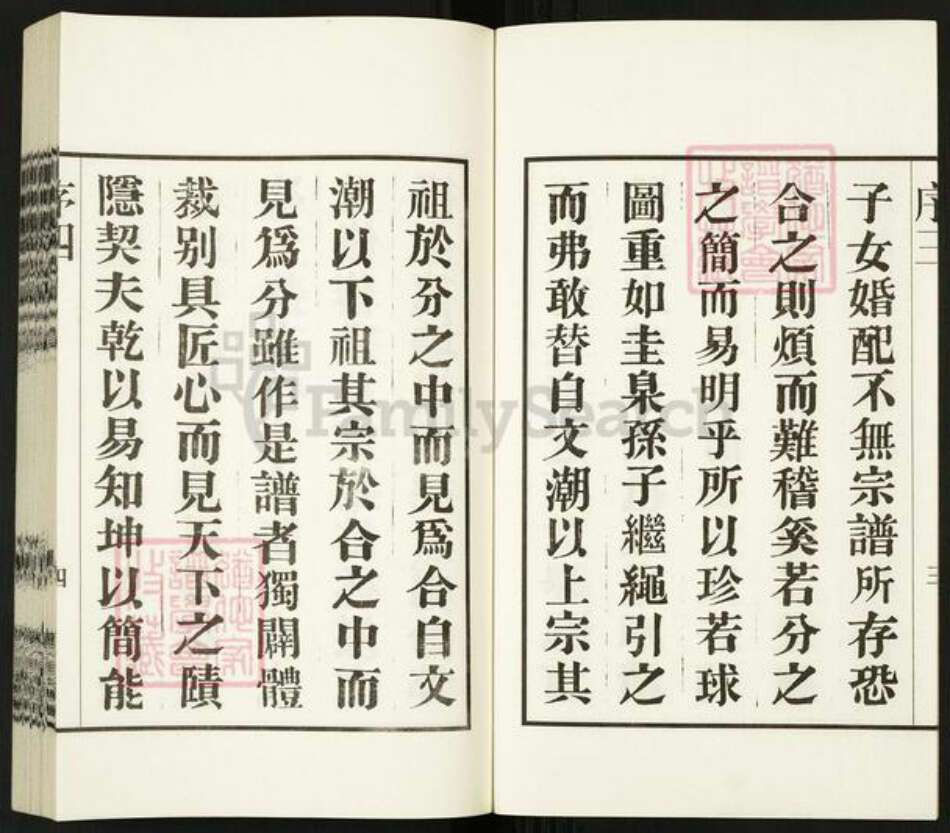 序三
子女婚配不無宗譜所存恐
合之則煩而難稽奚若分之
之簡而易明乎所以珍若球
圖重如圭臬孫子繼繩引之
而弗敢替自文潮以上宗其
三
祖於分之中而見爲合自文
潮以下祖其宗於合之中而
見爲分雖作是譜者獨闢體
裁别具匠心而見天下之賾
隱契夫乾以易知坤以簡能
序四
四
FamilySearch